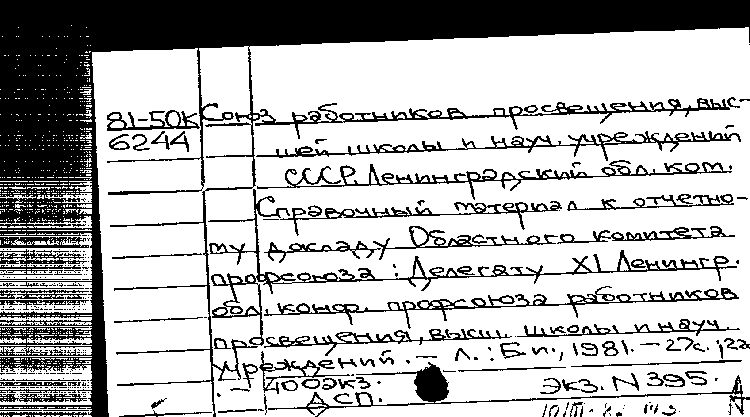 81-50К Союз работников просвещения, выс-
6244 шей школы и науч. учреждений
СССР. Ленинградский обл. ком.
Справочный материал к отчетно-
му докладу Областного комитета
профсоюза : Делегату XI Ленингр.
обл. конф. профсоюза работников
просвещения, высш. школы и науч.
учреждений. — Л. : Б.и., 1981. — 27с. ;22
. — 400экз. Экз. N 395.
ДСП.